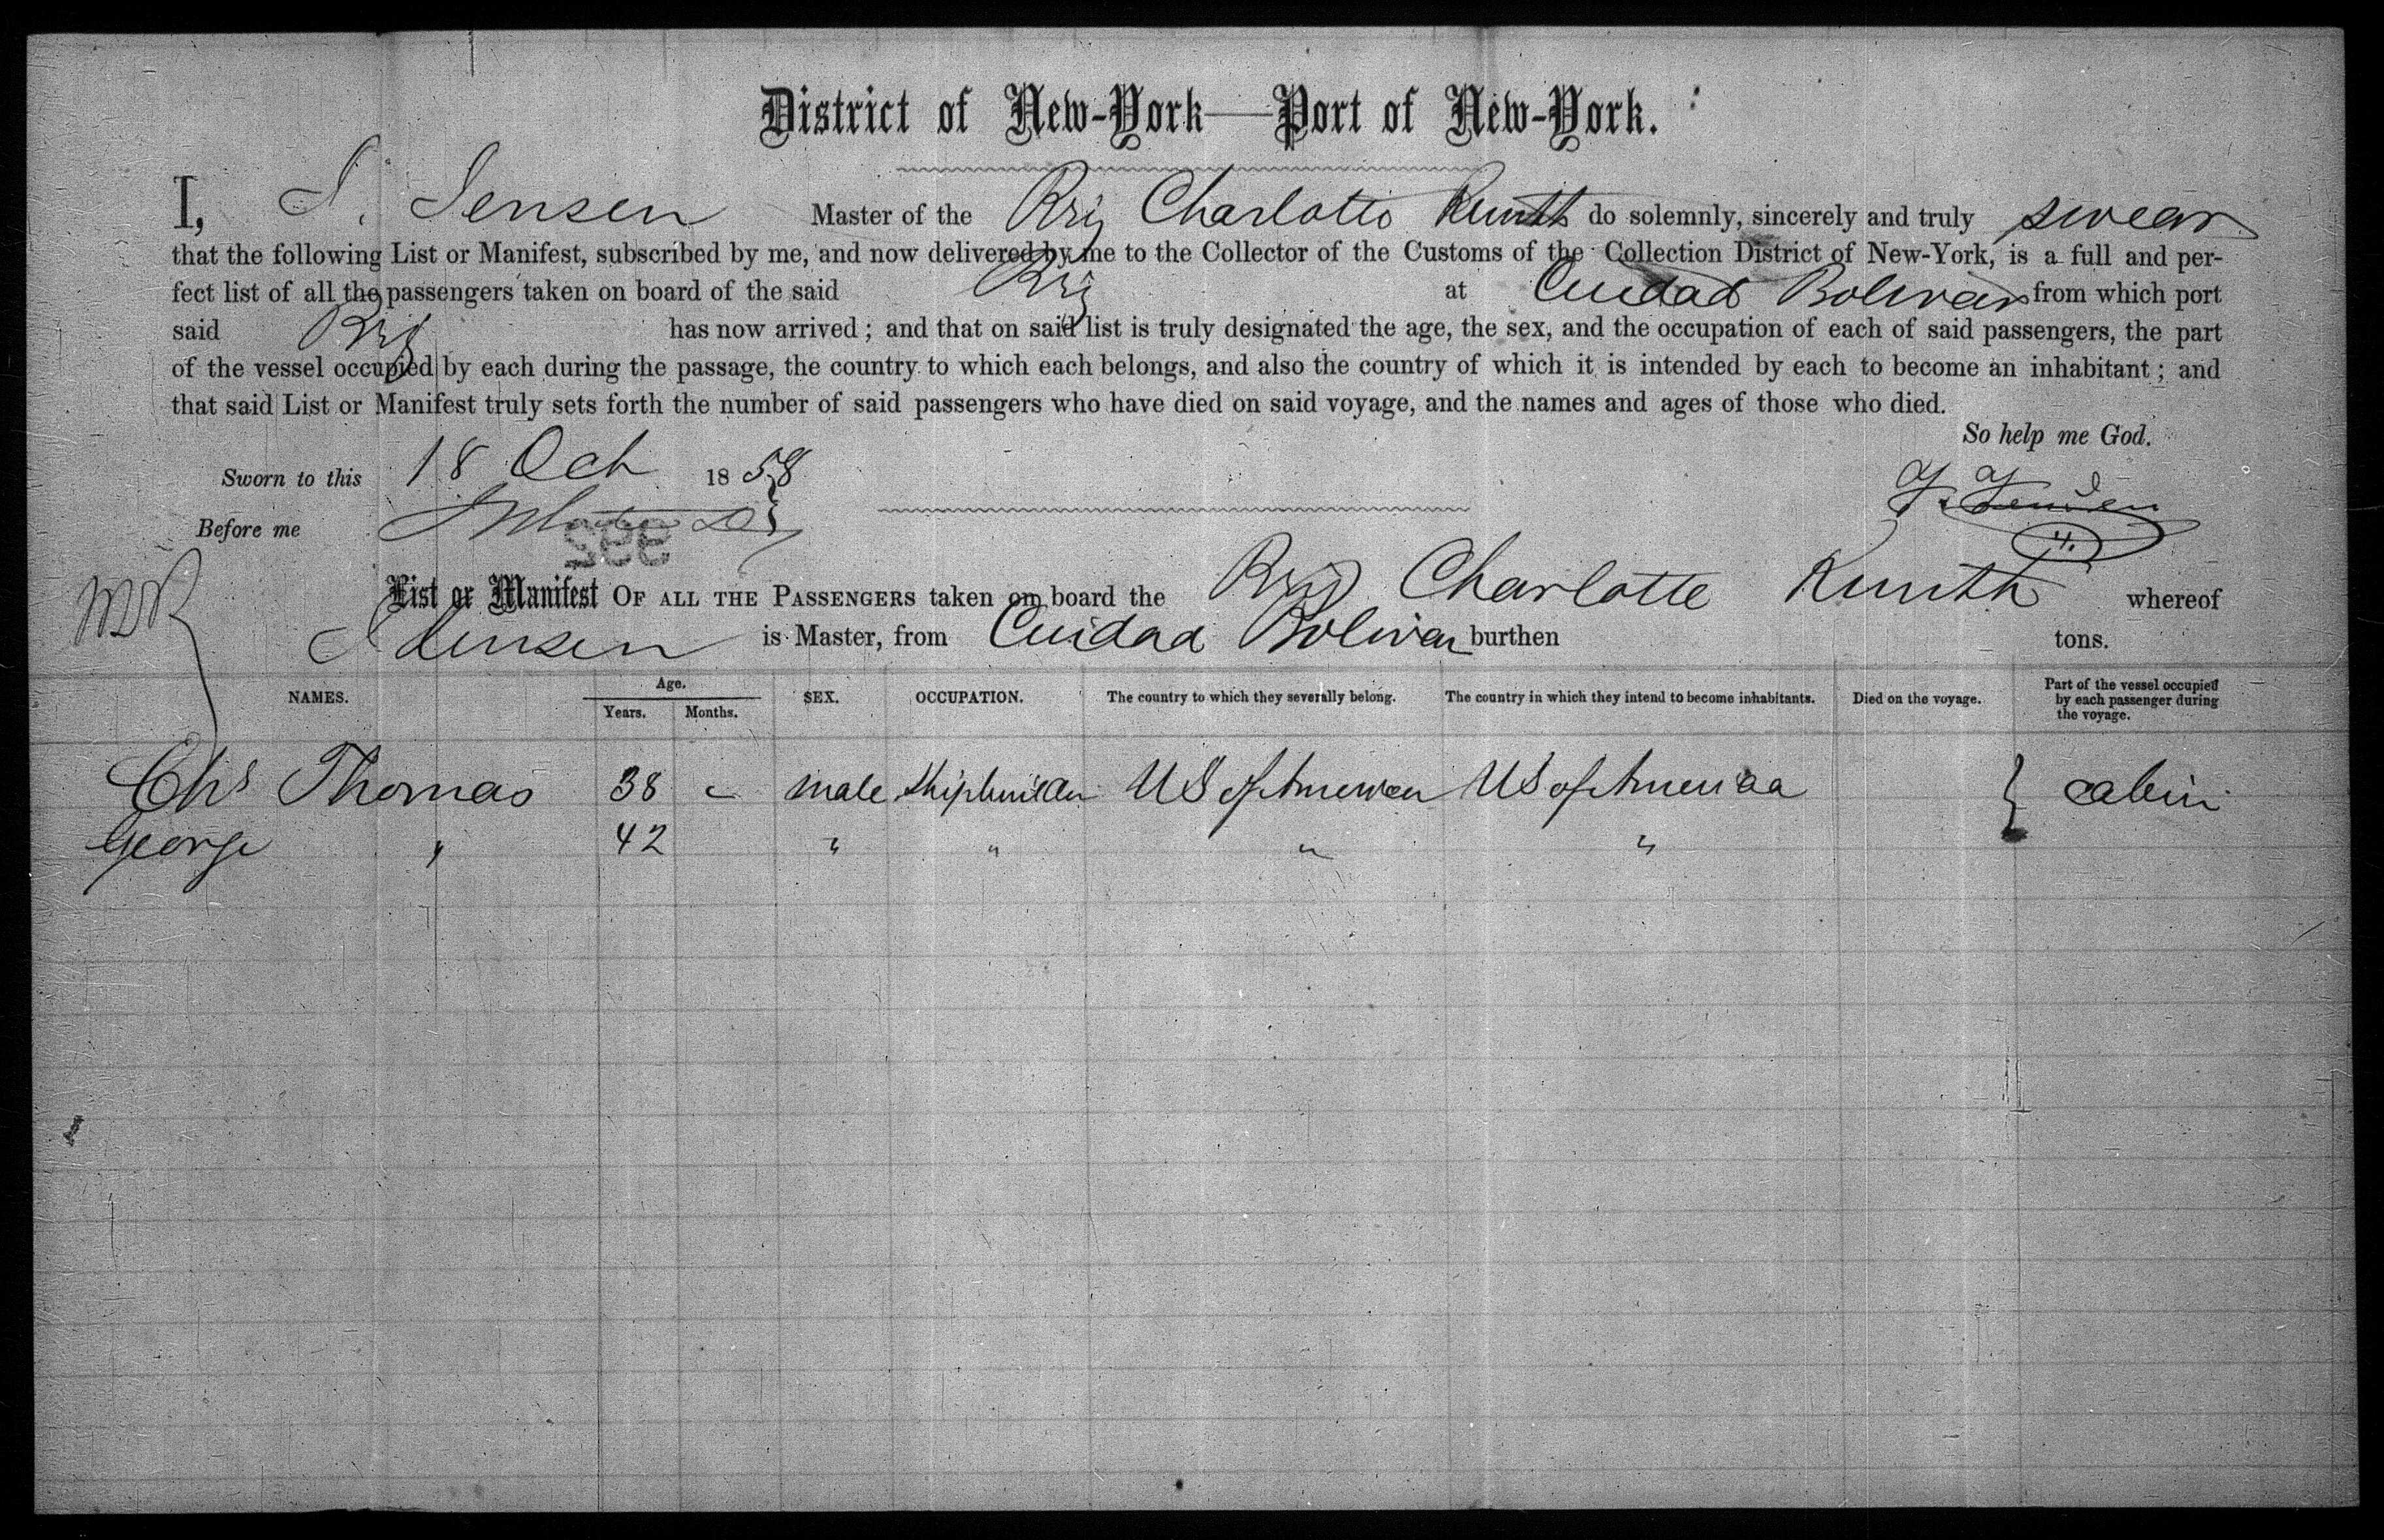 District of New-York—Port of New-York.
I, J. Jensen Master of the Brig Charlotte Kunth do solemnly, sincerely and truly swear
that the following List or Manifest, subscribed by me, and now delivered by me to the Collector of the Customs of the Collection District of New-York, is a full and per-
fect list of all the passengers taken on board of the said Brig at Cuidad Bolivar from which port
said Brig has now arrived; and that on said list is truly designated the age, the sex, and the occupation of each of said passengers, the part
of the vessel occupied by each during the passage, the country to which each belongs, and also the country of which it is intended by each to become an inhabitant; and
that said List or Manifest truly sets forth the number of said passengers who have died on said voyage, and the names and ages of those who died.
So help me God.
Sworn to this 18 Oct 1858
J. Jensen
Before me
992
List or Manifest OF ALL THE PASSENGERS taken on board the Brig Charlotte Kunth whereof
J Jensen is Master, from Cuidad Bolivar burthen tons.
NAMES. Age. Years. Months. SEX. OCCUPATION. The country to which they severally belong. The country in which they intend to become inhabitants. Died on the voyage. Part of the vessel occupied by each passenger during the voyage.
Chs Thomas 38 - male Shipbuilder US of America US of America } cabin
George " 42 " " " "